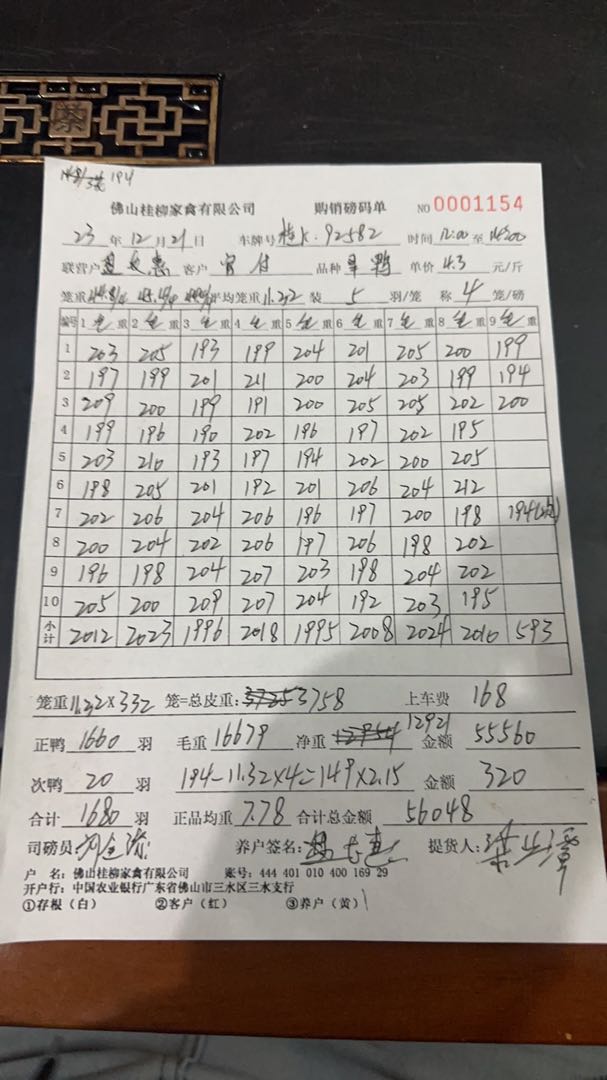 茶
194
佛山桂柳家禽有限公司 购销磅码单 NO 0001154
23 年 12 月 21 日 车牌号 桂K·92582 时间 12:00 至
联营户 客户 品种 鸭 单价 4.3 元/斤
笼重 平均笼重 11.32 装 5 羽/笼 称 4 笼/磅
编号 1 毛重 2 毛重 3 毛重 4 毛重 5 毛重 6 毛重 7 毛重 8 毛重 9 毛重
1 203 205 193 199 204 201 205 200 199
2 197 199 201 211 200 204 203 199 194
3 209 200 199 191 200 205 205 202 200
4 199 196 190 202 196 197 202 195
5 203 210 193 197 194 202 200 205
6 198 205 201 192 201 206 204 212
7 202 206 204 206 196 197 200 198 194
8 200 204 202 206 197 206 198 202
9 196 198 204 207 203 198 204 202
10 205 200 209 207 204 192 203 195
小计 2012 2023 1996 2018 1995 2008 2024 2010 593
笼重 11.32×332 笼=总皮重: 3725 3758 上车费 168
正鸭 1660 羽 毛重 16679 净重 12954 12921 金额 55560
次鸭 20 羽 194-11.32×4=149×2.15 金额 320
合计 1680 羽 正品均重 7.78 合计总金额 56048
司磅员 养户签名: 提货人:
户 名: 佛山桂柳家禽有限公司 账号: 444 401 010 400 169 29
开户行: 中国农业银行广东省佛山市三水区三水支行
①存根(白) ②客户(红) ③养户(黄)